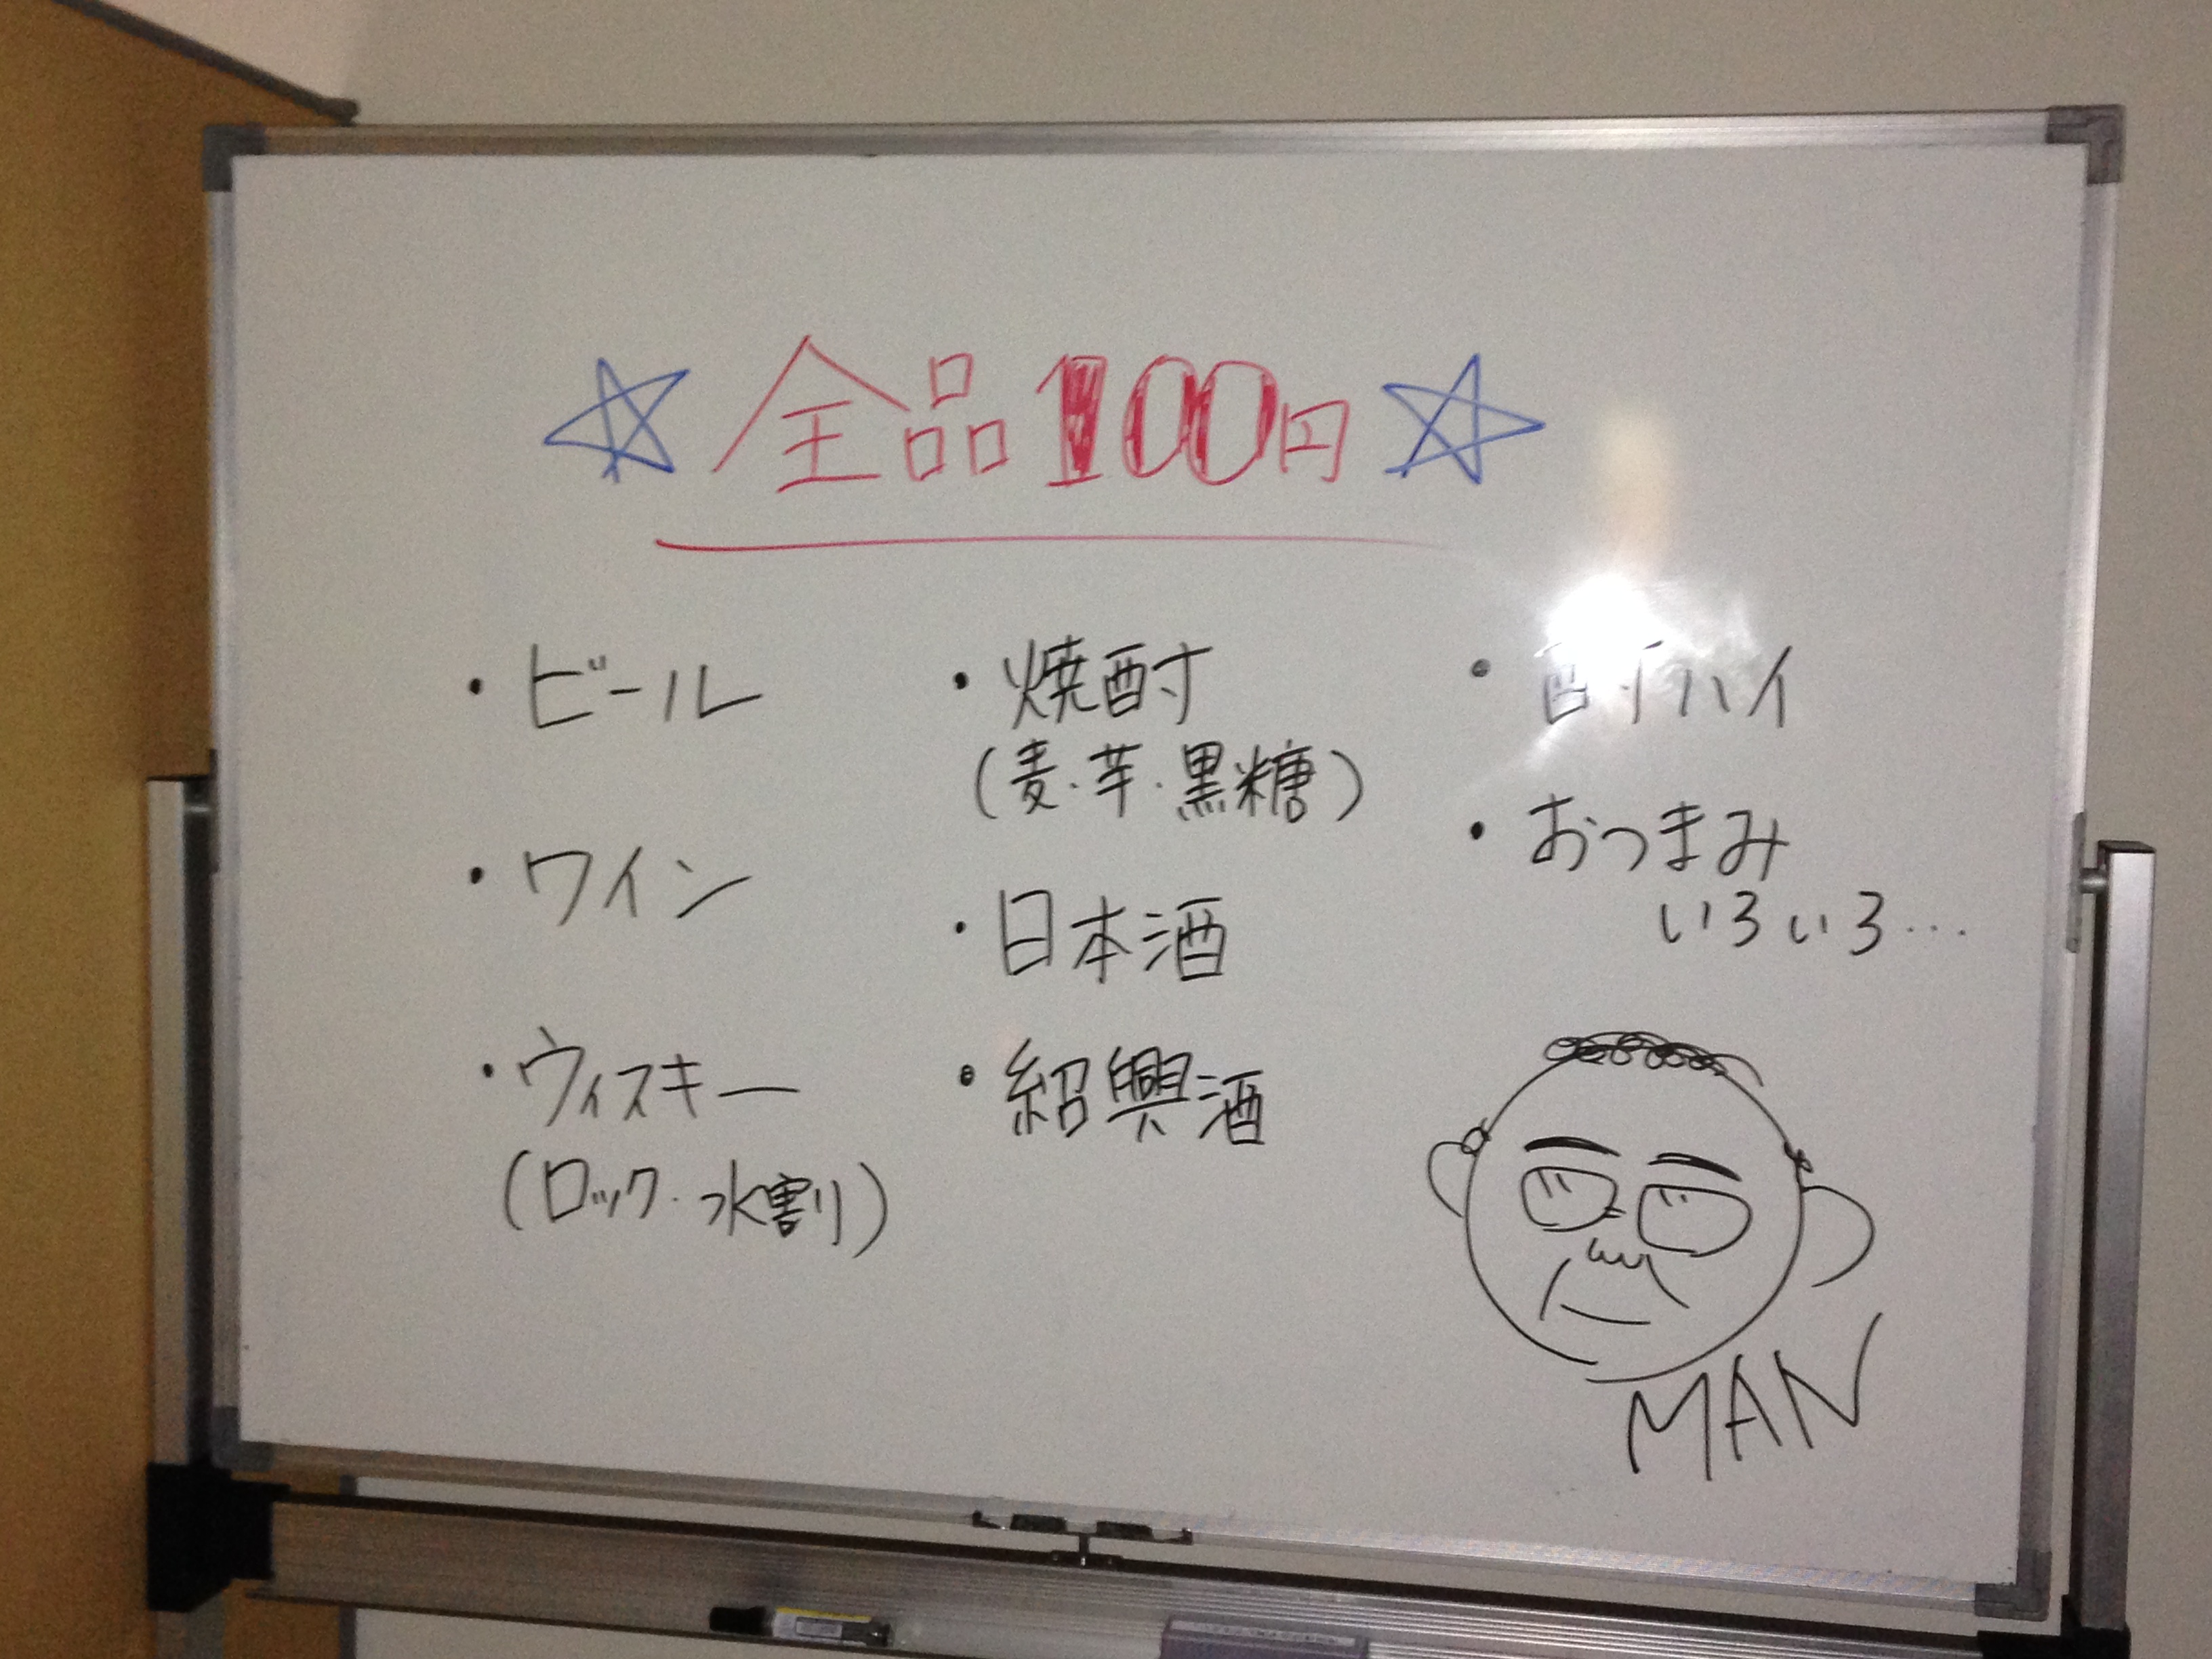 ☆全品100円☆
・ビール
・ワイン
・ウィスキー
(ロック・水割り)
・焼酎
(麦・芋・黒糖)
・日本酒
・紹興酒
・酎ハイ
・おつまみ
いろいろ…
MAN